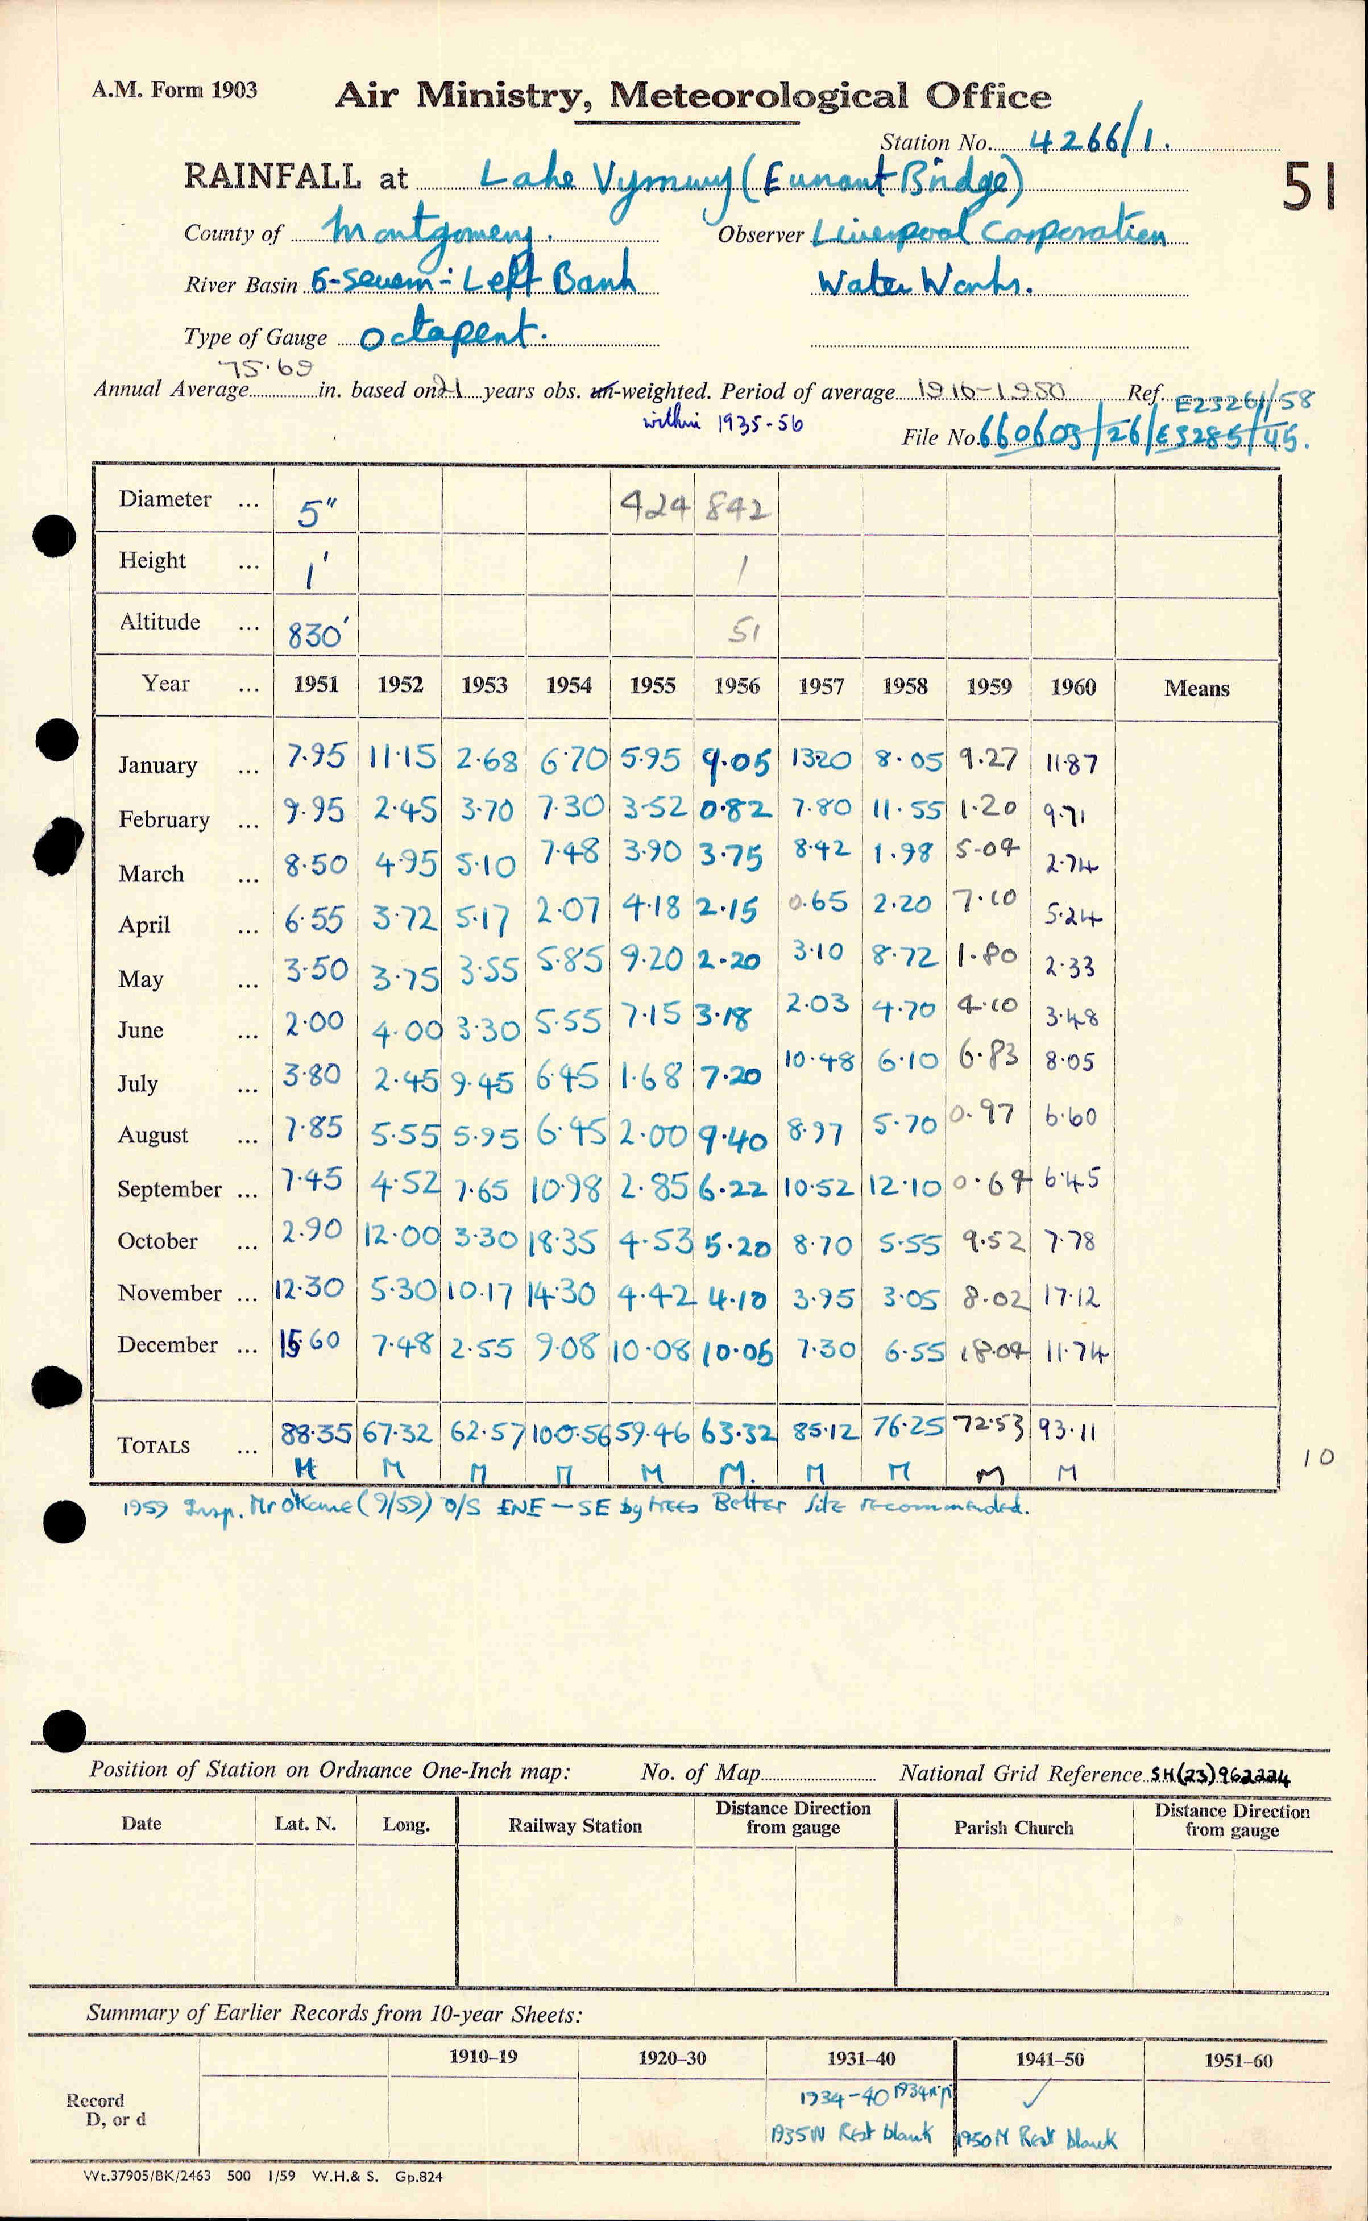 A.M. Form 1903
Air Ministry, Meteorological Office
Station No. 4266/1.
RAINFALL at Lake Vyrnwy (Eunant Bridge)
51
County of Montgomery. Observer Liverpool Corporation
River Basin 6-Severn:- Left Bank Water Works.
Type of Gauge Octapent.
75.69
Annual Average in. based on 21 years obs. un-weighted. Period of average 1916-1950 Ref. E23261/58
within 1935-56
File No. 660603/26/E3285/45.
Diameter ... 5" 424 842
Height ... 1' 1
Altitude ... 830' 51
Year ... 1951 1952 1953 1954 1955 1956 1957 1958 1959 1960 Means
January ... 7.95 11.15 2.68 6.70 5.95 9.05 13.20 8.05 9.27 11.87
February ... 9.95 2.45 3.70 7.30 3.52 0.82 7.80 11.55 1.20 9.71
March ... 8.50 4.95 5.10 7.48 3.90 3.75 8.42 1.98 5.04 2.74
April ... 6.55 3.72 5.17 2.07 4.18 2.15 0.65 2.20 7.10 5.24
May ... 3.50 3.75 3.55 5.85 9.20 2.20 3.10 8.72 1.80 2.33
June ... 2.00 4.00 3.30 5.55 7.15 3.18 2.03 4.70 4.10 3.48
July ... 3.80 2.45 9.45 6.45 1.68 7.20 10.48 6.10 6.83 8.05
August ... 7.85 5.55 5.95 6.45 2.00 9.40 8.97 5.70 0.97 6.60
September ... 7.45 4.52 7.65 10.98 2.85 6.22 10.52 12.10 0.64 6.45
October ... 2.90 12.00 3.30 18.35 4.53 5.20 8.70 5.55 9.52 7.78
November ... 12.30 5.30 10.17 14.30 4.42 4.10 3.95 3.05 8.02 17.12
December ... 15.60 7.48 2.55 9.08 10.08 10.05 7.30 6.55 18.04 11.74
TOTALS ... 88.35 67.32 62.57 100.56 59.46 63.32 85.12 76.25 72.53 93.11
M M M M M M. M M M M
10
1959 Insp. Mr O'Kane (9/59) O/S ENE - SE by trees Better site recommended.
Position of Station on Ordnance One-Inch map: No. of Map National Grid Reference SH(23)962224
Date Lat. N. Long. Railway Station Distance Direction from gauge Parish Church Distance Direction from gauge
Summary of Earlier Records from 10-year Sheets:
1910-19 1920-30 1931-40 1941-50 1951-60
Record 1934-40 ✓
D, or d 1935 N Rest blank 1950 M Rest blank
Wt.37905/BK/2463 500 1/59 W.H.& S. Gp.824